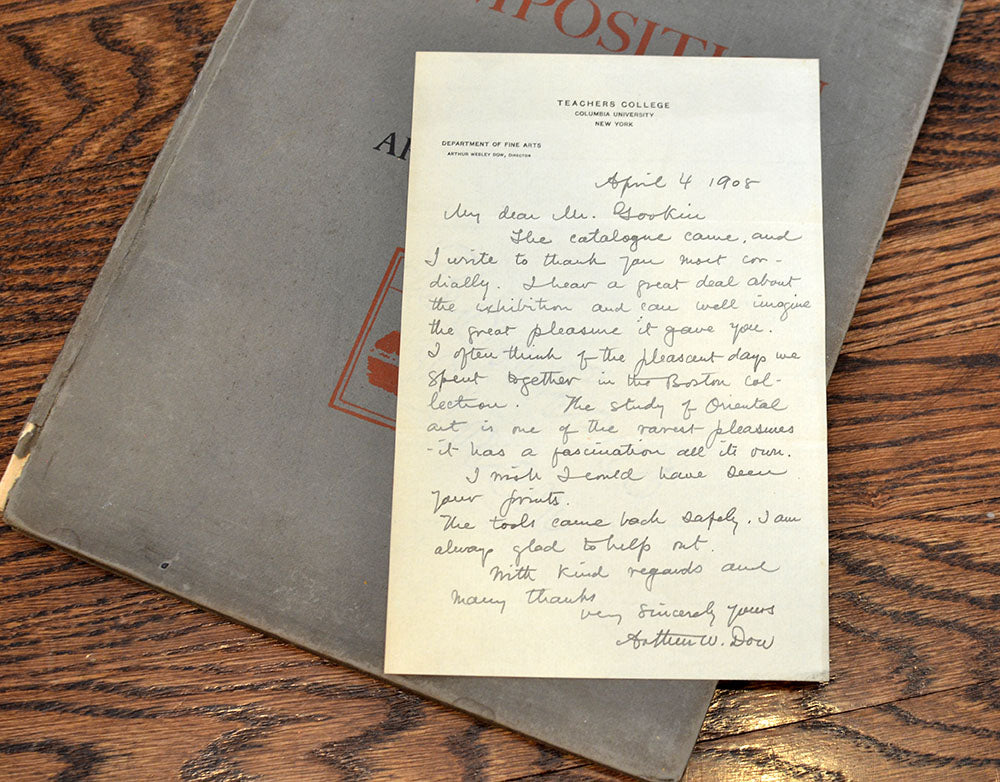 MPOSITI
A
TEACHERS COLLEGE
COLUMBIA UNIVERSITY
NEW YORK
DEPARTMENT OF FINE ARTS
ARTHUR WESLEY DOW, DIRECTOR
April 4 1908
My dear Mr. Gookin
The catalogue came, and
I write to thank you most cor-
dially. I hear a great deal about
the exhibition and can well imagine
the great pleasure it gave you.
I often think of the pleasant days we
spent together in the Boston col-
lection. The study of Oriental
art is one of the rarest pleasures
-it has a fascination all its own.
I wish I could have seen
your prints.
The tools came back safely. I am
always glad to help out.
With kind regards and
many thanks
very sincerely yours
Arthur W. Dow